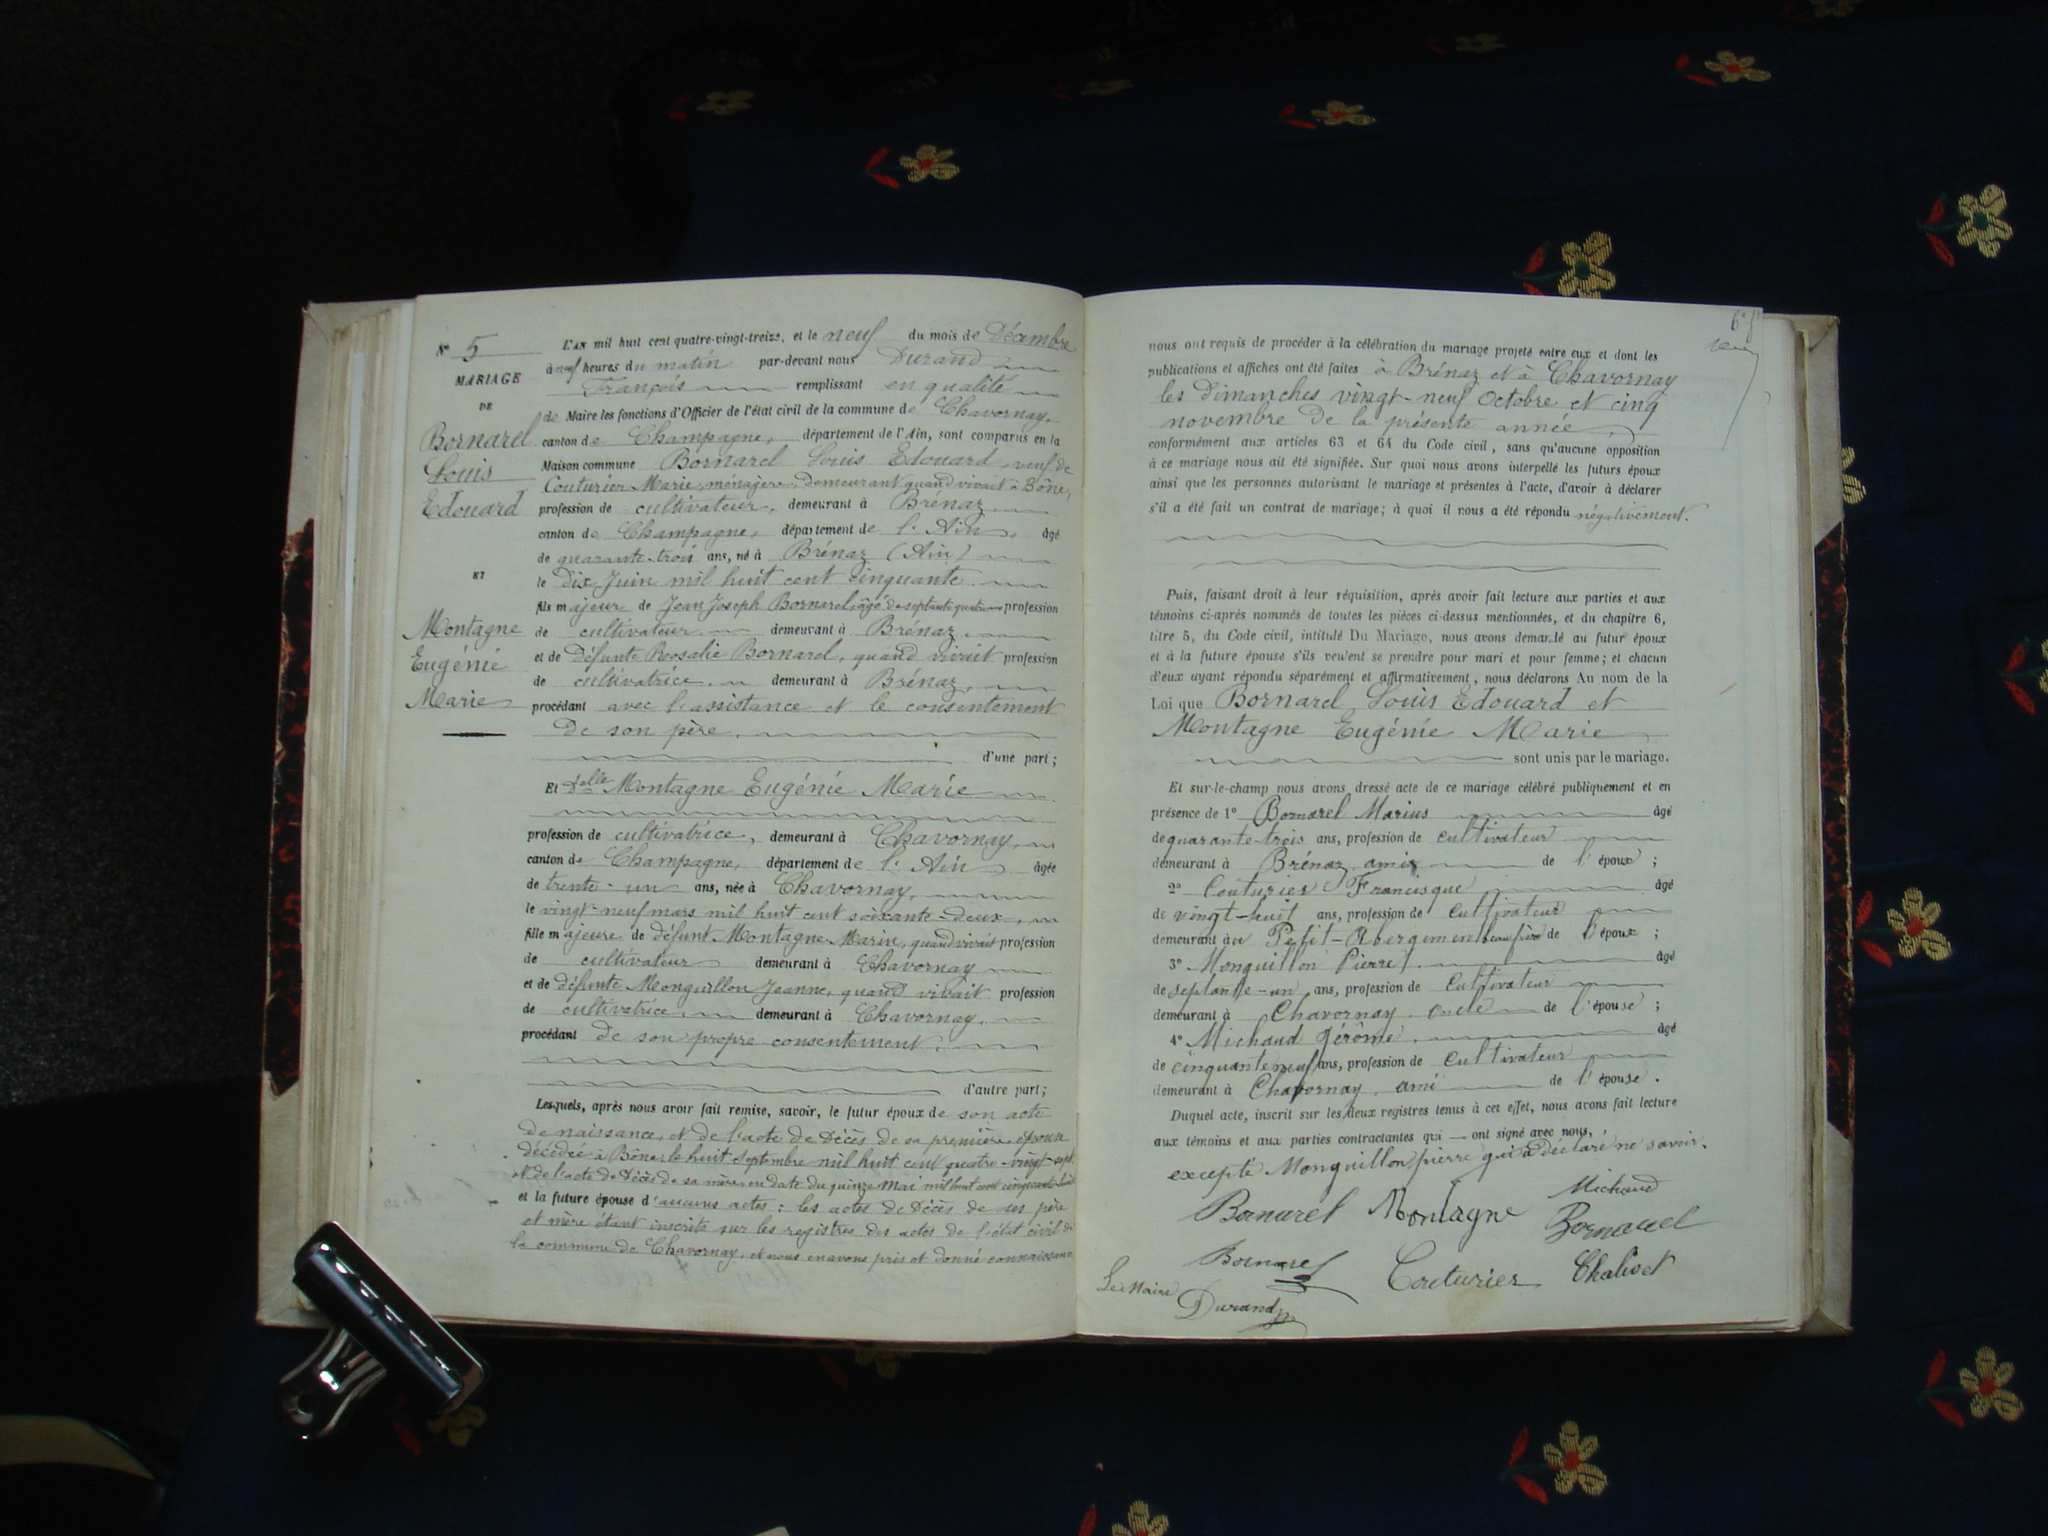 N° 5
MARIAGE
DE
Bornarel
Louis
Edouard
ET
Montagne
Eugénie
Marie
L'AN mil huit cent quatre-vingt-treize, et le neuf du mois de Décembre
à neuf heures du matin par-devant nous Durand
François remplissant en qualité
de Maire les fonctions d'Officier de l'état civil de la commune de Chavornay,
canton de Champagne, département de l'Ain, sont comparus en la
Maison commune Bornarel Louis Edouard, veuf de
Couturier Marie, ménagère, demeurant quand vivait à Bône,
profession de cultivateur, demeurant à Brénaz
canton de Champagne, département de l'Ain, âgé
de quarante-trois ans, né à Brénaz (Ain)
le dix Juin mil huit cent cinquante
fils majeur de Jean Joseph Bornarel, âgé de septante quatre profession
de cultivateur demeurant à Brénaz
et de défunte Rosalie Bornarel, quand vivait profession
de cultivatrice, demeurant à Brénaz,
procédant avec l'assistance et le consentement
de son père,
d'une part;
Et Delle Montagne Eugénie Marie
profession de cultivatrice, demeurant à Chavornay,
canton de Champagne, département de l'Ain âgée
de trente-un ans, née à Chavornay,
le vingt-neuf mars mil huit cent soixante-deux,
fille majeure de défunt Montagne Marin, quand vivait profession
de cultivateur demeurant à Chavornay
et de défunte Monguillon Jeanne, quand vivait profession
de cultivatrice, demeurant à Chavornay,
procédant de son propre consentement,
d'autre part;
Lesquels, après nous avoir fait remise, savoir, le futur époux de son acte
de naissance, et de l'acte de décès de sa première épouse
décédée à Bône le huit Septembre mil huit cent quatre-vingt-sept,
et de l'acte de décès de sa mère en date du quinze Mai mil huit cent
et la future épouse d'aucuns actes: les actes de décès de ses père
et mère étant inscrits sur les registres des actes de l'état civil de
la commune de Chavornay, et nous en avons pris et donné connaissance
nous ont requis de procéder à la célébration du mariage projeté entre eux et dont les
publications et affiches ont été faites à Brénaz et à Chavornay
les dimanches vingt-neuf Octobre et cinq
novembre de la présente année,
conformément aux articles 63 et 64 du Code civil, sans qu'aucune opposition
à ce mariage nous ait été signifiée. Sur quoi nous avons interpellé les futurs époux
ainsi que les personnes autorisant le mariage et présentes à l'acte, d'avoir à déclarer
s'il a été fait un contrat de mariage; à quoi il nous a été répondu négativement.
Puis, faisant droit à leur réquisition, après avoir fait lecture aux parties et aux
témoins ci-après nommés de toutes les pièces ci-dessus mentionnées, et du chapitre 6,
titre 5, du Code civil, intitulé Du Mariage, nous avons demandé au futur époux
et à la future épouse s'ils veulent se prendre pour mari et pour femme; et chacun
d'eux ayant répondu séparément et affirmativement, nous déclarons Au nom de la
Loi que Bornarel Louis Edouard et
Montagne Eugénie Marie
sont unis par le mariage.
Et sur-le-champ nous avons dressé acte de ce mariage célébré publiquement et en
présence de 1° Bornarel Marius âgé
de quarante-trois ans, profession de cultivateur
demeurant à Brénaz ami de l'époux;
2° Couturier Francisque, âgé
de vingt-huit ans, profession de cultivateur
demeurant au Petit-Abergement beau frère de l'époux;
3° Monguillon Pierre, âgé
de septante-un ans, profession de cultivateur
demeurant à Chavornay oncle de l'épouse;
4° Michaud Jérôme, âgé
de cinquante neuf ans, profession de cultivateur
demeurant à Chavornay, ami de l'épouse.
Duquel acte, inscrit sur les deux registres tenus à cet effet, nous avons fait lecture
aux témoins et aux parties contractantes qui ont signé avec nous,
excepté Monguillon pierre qui a déclaré ne savoir.
Michaud
Bornarel Montagne Bornarel
Bornarel Couturier Chaboet
Le Maire
Durand